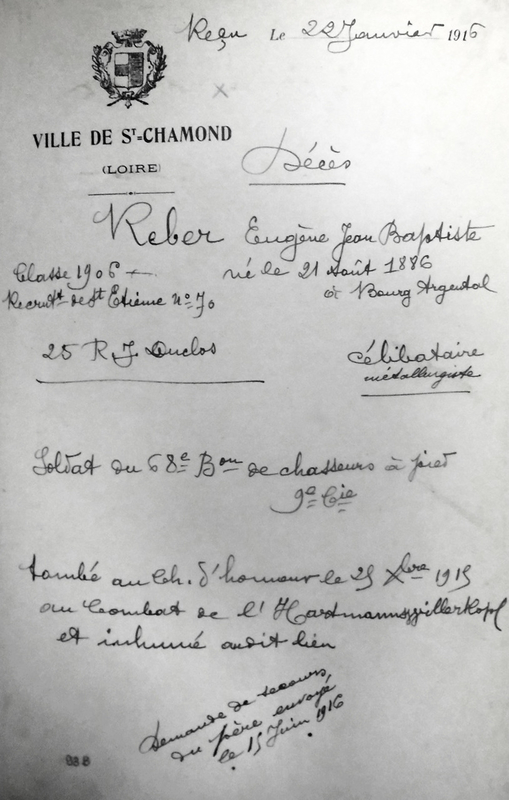 Reçu Le 22 Janvier 1916
VILLE DE ST-CHAMOND
(LOIRE)
Décès
Reber Eugène Jean Baptiste
Classe 1906 né le 21 Août 1886
Recrutt de St Etienne no 70 à Bourg Argental
25 R. J. Duclos célibataire
métallurgiste
Soldat du 68e Bon de chasseurs à pied
9e Cie
tombé au Ch. d'honneur le 25 Xbre 1915
au Combat de l'Hartmannswillerkopf
et inhumé audit lieu
Demande de secours
du père envoyé
le 15 Juin 1916